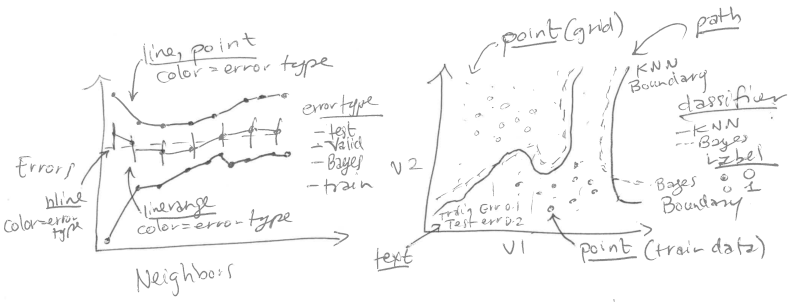 line, point
color = error type
error type
test
valid
Bayes
train
Errors
hline
color=error
type
linerange
color = error type
Neighbors
point (grid)
path
KNN
Boundary
classifier
KNN
Bayes
label
0
1
V2
Bayes
Boundary
Train Err 0.1
Test err 0.2
text
V1
point (train data)